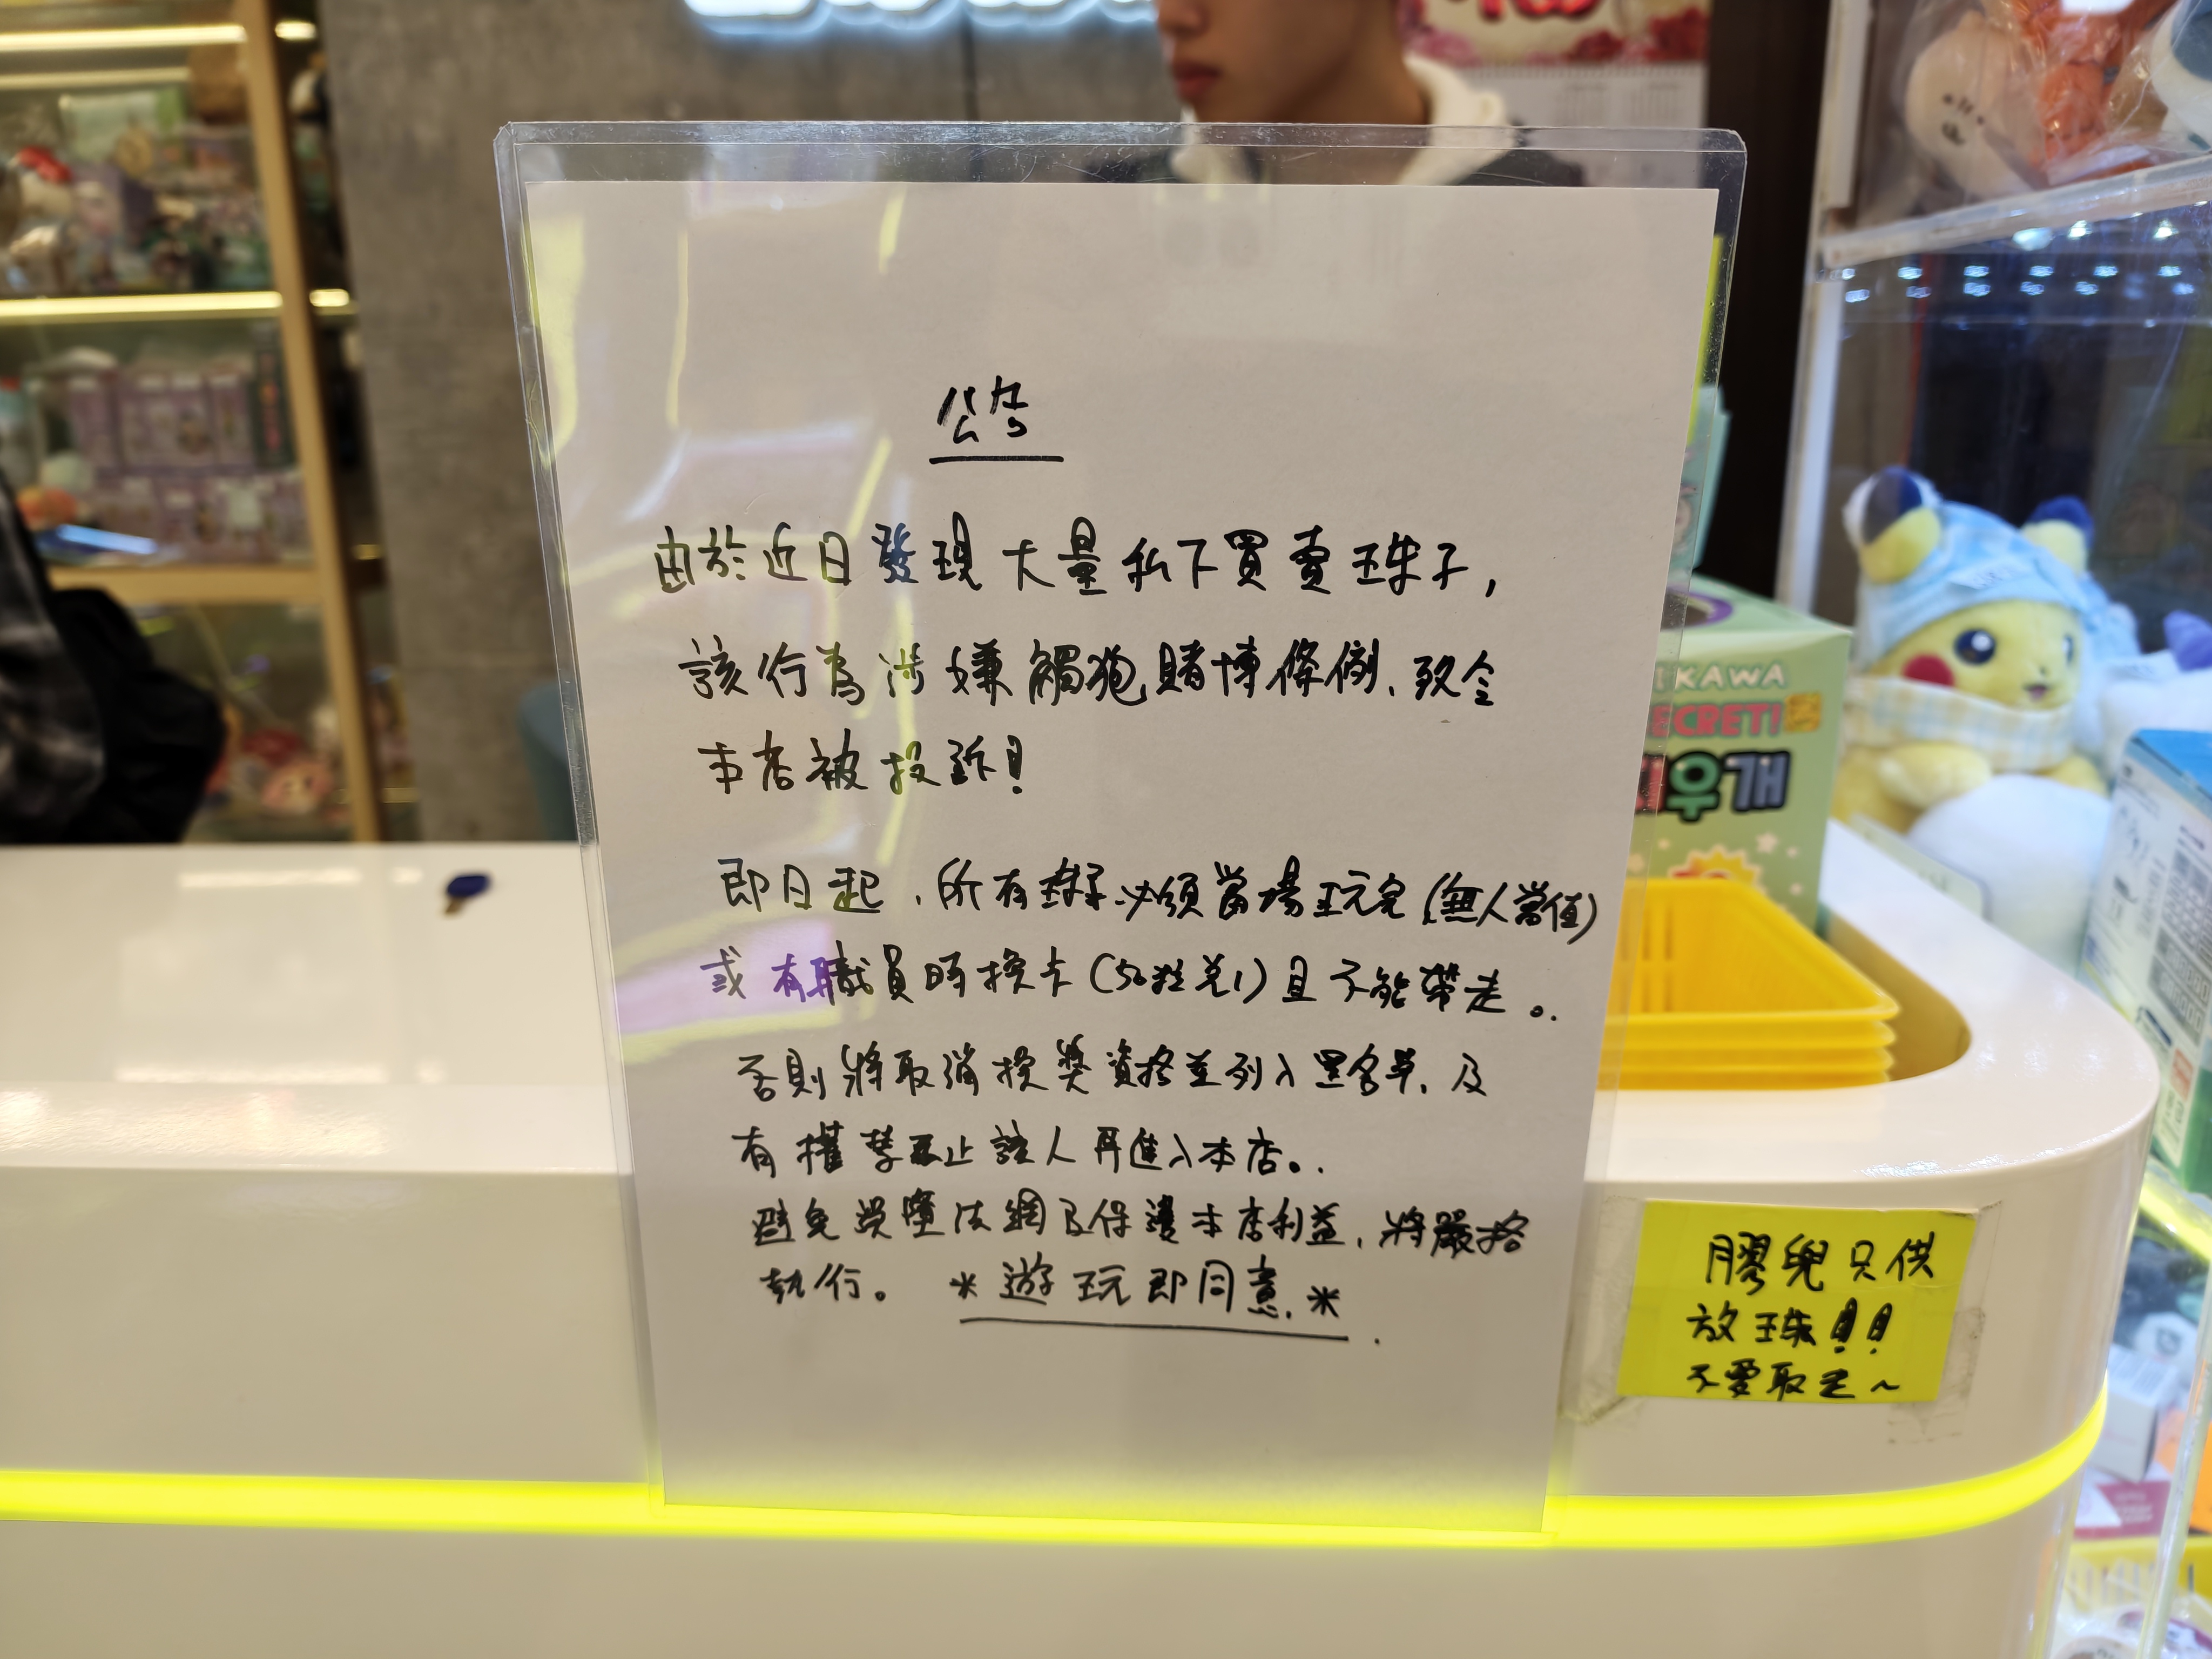 公告
由於近日發現大量私下買賣珠子，
該行為涉嫌觸犯賭博條例，致令
本店被投訴！
即日起，所有珠子必須當場玩完（無人當值）
或有職員時換卡（50粒兌1）且不能帶走。
否則將取消換獎資格並列入黑名單，及
有權禁止該人再進入本店。
避免誤墮法網及保護本店利益，將嚴格
執行。 *遊玩即同意*
膠兜只供
放珠！！
不要取走～
IKAWA
ECRET!